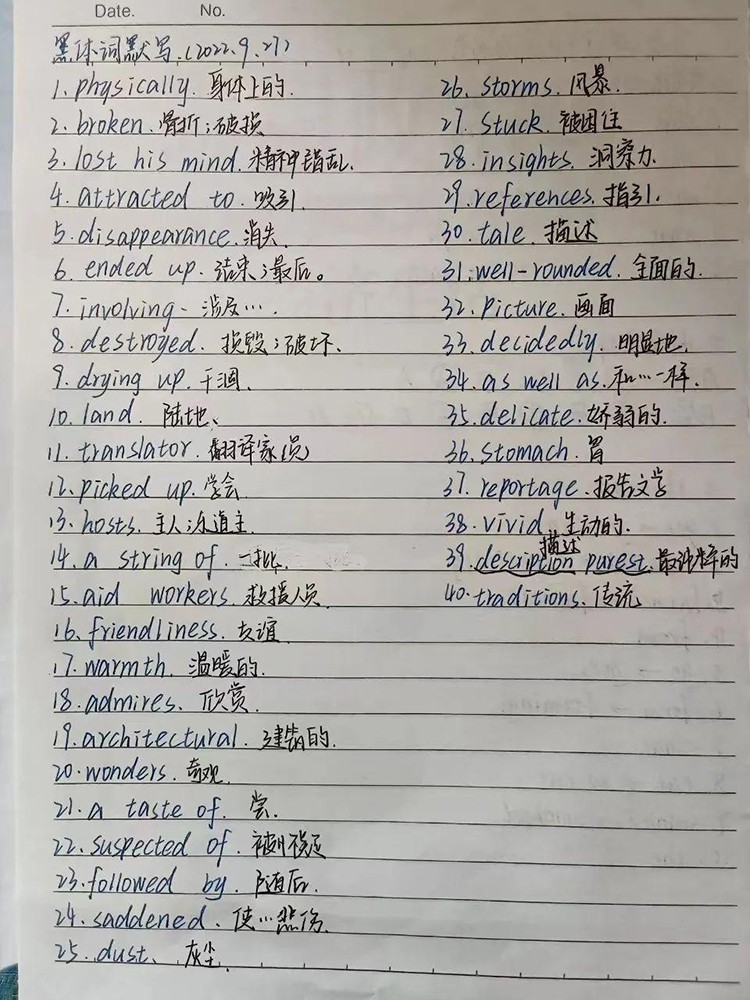 Date. No.
黑体词默写.(2022.9.27)
1. physically. 身体上的.
2. broken. 骨折;破损
3. lost his mind. 精神错乱.
4. attracted to. 吸引.
5. disappearance. 消失.
6. ended up. 结束;最后。
7. involving - 涉及...
8. destroyed. 损毁;破坏.
9. drying up. 干涸.
10. land. 陆地、
11. translator. 翻译家(员)
12. picked up. 学会.
13. hosts. 主人;东道主.
14. a string of. 一批.
15. aid workers. 救援人员.
16. friendliness. 友谊
17. warmth. 温暖的.
18. admires. 欣赏
19. architectural. 建筑的.
20. wonders. 奇观.
21. a taste of. 尝.
22. suspected of. 被怀疑
23. followed by. 随后.
24. saddened. 使...悲伤.
25. dust. 灰尘.
26. storms. 风暴.
27. stuck. 被困住
28. insights. 洞察力.
29. references. 指引.
30. tale. 描述
31. well-rounded. 全面的.
32. Picture. 画面
33. decidedly. 明显地.
34. as well as. 和...一样.
35. delicate. 娇弱的.
36. stomach. 胃
37. reportage. 报告文学
38. vivid. 生动的.
描述
39. description purest. 最纯粹的
40. traditions. 传统